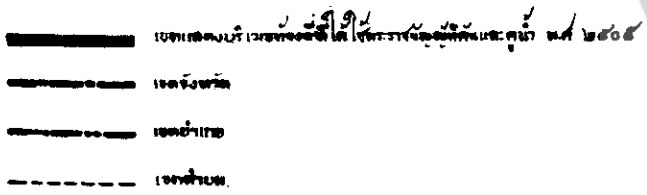 เขตแสดงบริเวณท้องที่ที่ได้ใช้พระราชบัญญัติคันและคูน้ำ พ.ศ ๒๕๐๕
เขตจังหวัด
เขตอำเภอ
เขตตำบล